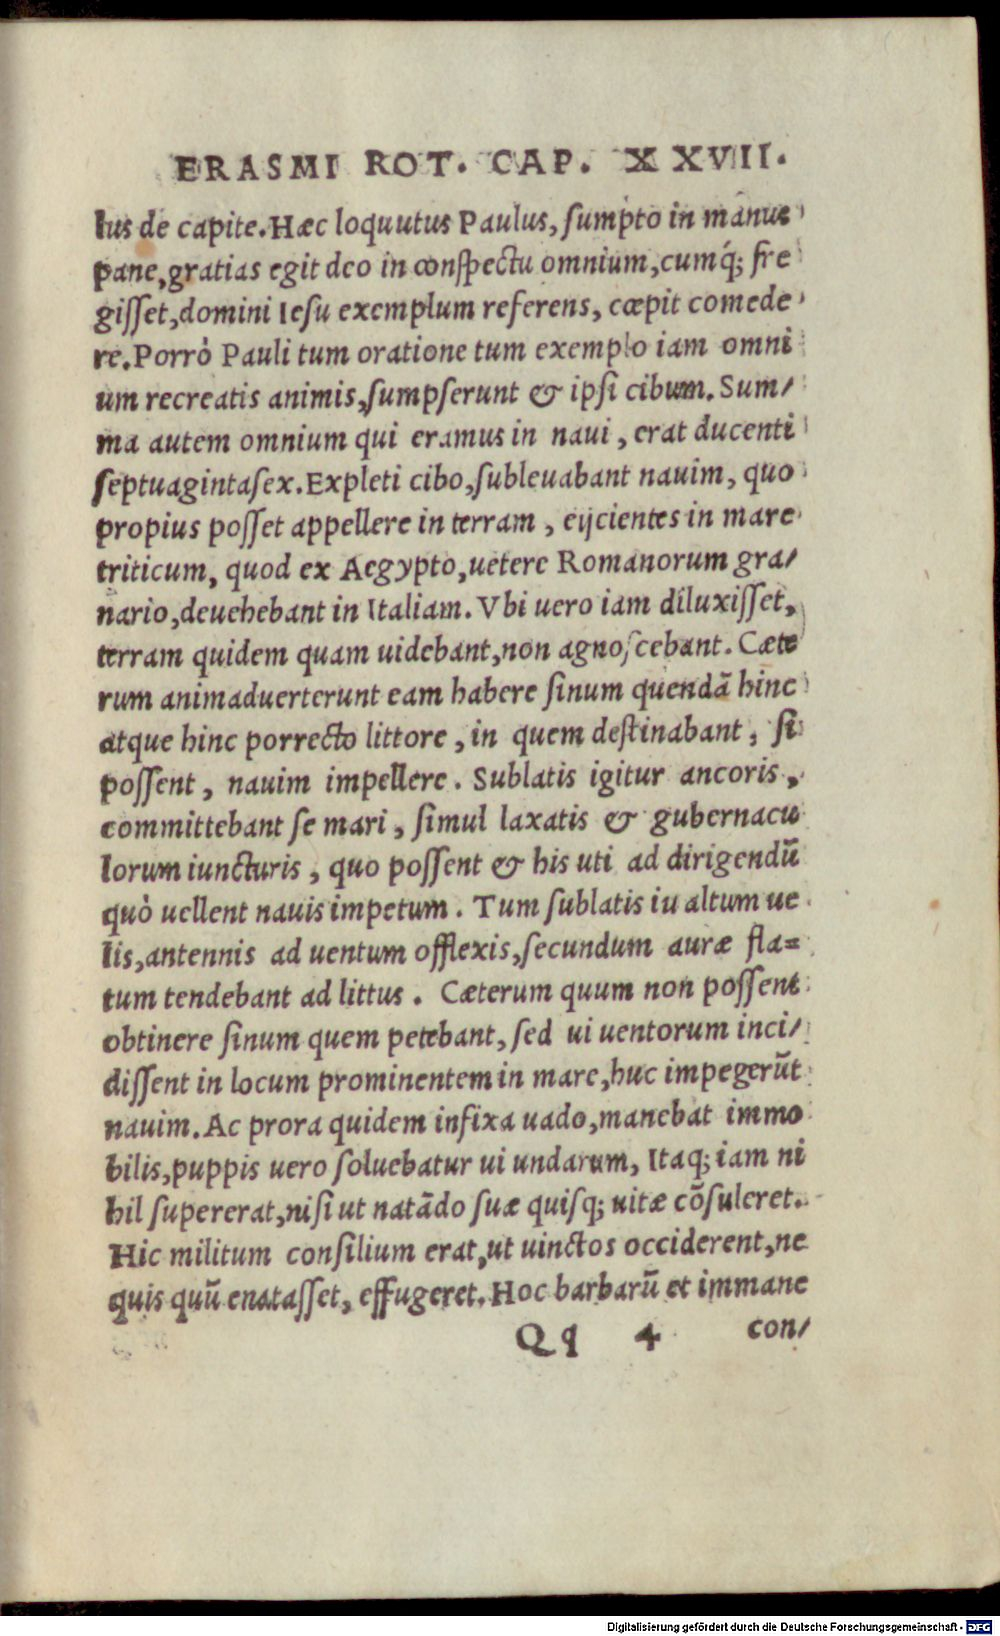 ERASMI ROT. CAP. XXVII.
lus de capite. Hæc loquutus Paulus, ſumpto in manus
pane, gratias egit deo in conſpectu omnium, cumq́; fre
giſſet, domini Ieſu exemplum referens, cœpit comede
re. Porrò Pauli tum oratione tum exemplo iam omni
um recreatis animis, ſumpſerunt & ipſi cibum. Sum/
ma autem omnium qui eramus in naui, erat ducenti
ſeptuagintaſex. Expleti cibo, ſubleuabant nauim, quo
propius poſſet appellere in terram, eijcientes in mare
triticum, quod ex Aegypto, uetere Romanorum gra/
nario, deuehebant in Italiam. Vbi uero iam diluxiſſet,
terram quidem quam uidebant, non agnoſcebant. Cæte
rum animaduerterunt eam habere ſinum quendã hinc
atque hinc porrecto littore, in quem deſtinabant, ſi
poſſent, nauim impellere. Sublatis igitur ancoris,
committebant ſe mari, ſimul laxatis & gubernacu
lorum iuncturis, quo poſſent & his uti ad dirigendũ
quò uellent nauis impetum. Tum ſublatis iu altum ue
lis, antennis ad uentum offlexis, ſecundum auræ fla=
tum tendebant ad littus. Cæterum quum non poſſent
obtinere ſinum quem petebant, ſed ui uentorum inci/
diſſent in locum prominentem in mare, huc impegerũt
nauim. Ac prora quidem infixa uado, manebat immo
bilis, puppis uero ſoluebatur ui undarum, Itaq; iam ni
hil ſupererat, niſi ut natãdo ſuæ quiſq; uitæ cõſuleret.
Hic militum conſilium erat, ut uinctos occiderent, ne
quis quũ enataſſet, effugeret. Hoc barbarũ et immane
Qq 4 con/
Digitalisierung gefördert durch die Deutsche Forschungsgemeinschaft - DFG